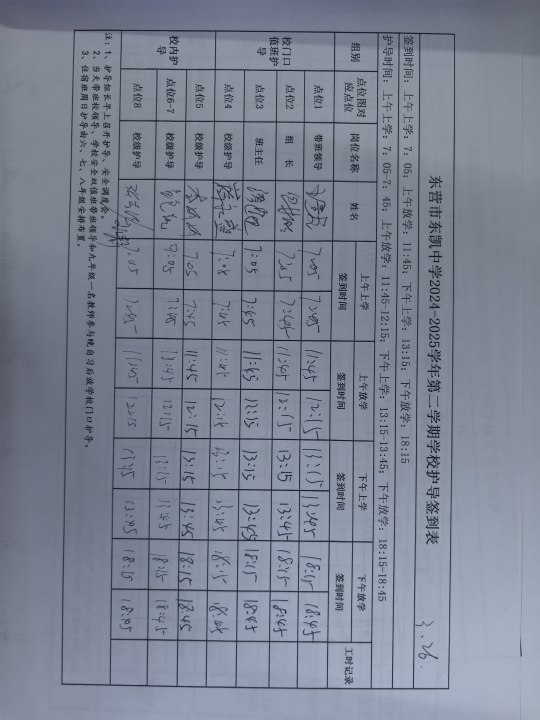 东营市东凯中学2024-2025学年第二学期学校护导签到表
3.26
签到时间：上午上学：7：05；上午放学：11:45；下午上学：13:15；下午放学：18:15
护导时间：上午上学：7：05-7：45；上午放学：11:45-12:15；下午上学：13:15-13:45；下午放学：18:15-18:45
组别 点位图对应点位 岗位名称 姓名 上午上学签到时间 上午放学签到时间 下午上学签到时间 下午放学签到时间 工时记录
校门口值班护导 点位1 带班领导 7:05 7:45 11:45 12:15 13:15 13:45 18:15 18:45
点位2 组长 7:05 7:45 11:45 12:15 13:15 13:45 18:15 18:45
点位3 班主任 7:05 7:45 11:45 12:15 13:15 13:45 18:15 18:45
点位4 校级护导 18:15 18:45
校内护导 点位5 校级护导 7:05 7:45 11:45 12:15 13:15 13:45 18:15 18:45
点位6-7 校级护导 7:05 7:45 11:45 12:15 13:15 13:45 18:15 18:45
点位8 校级护导 7:05 7:45 11:45 12:15 13:45 18:15 18:45
注：1、护导组长早上召开护导、安全调度会。
2、当天带班校领导、学校安全双值班带班领导和九年级一名教师参与晚自习后放学校门口护导。
3、住宿班周日护导由六、七、八年级安排布置。